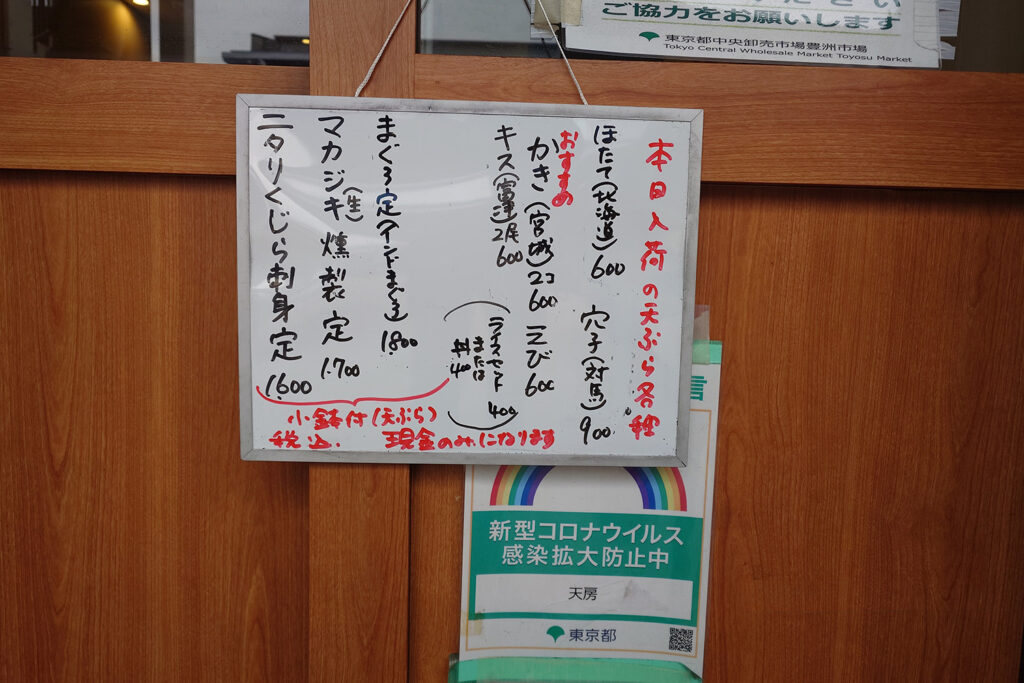 ご協力をお願いします
東京都中央卸売市場豊洲市場
Tokyo Central Wholesale Market Toyosu Market
本日入荷の天ぷら各種
ほたて(北海道)600
穴子(対馬)900
おすすめ
かき(宮城)2コ600
えび600
キス(富津)2尾600
ライスセット400
または
丼400
まぐろ定(インドまぐろ)1800
マカジキ(生)燻製定1.700
ニタリくじら刺身定1.600
小鉢付(天ぷら)
税込. 現金のみになります
新型コロナウイルス
感染拡大防止中
天房
東京都